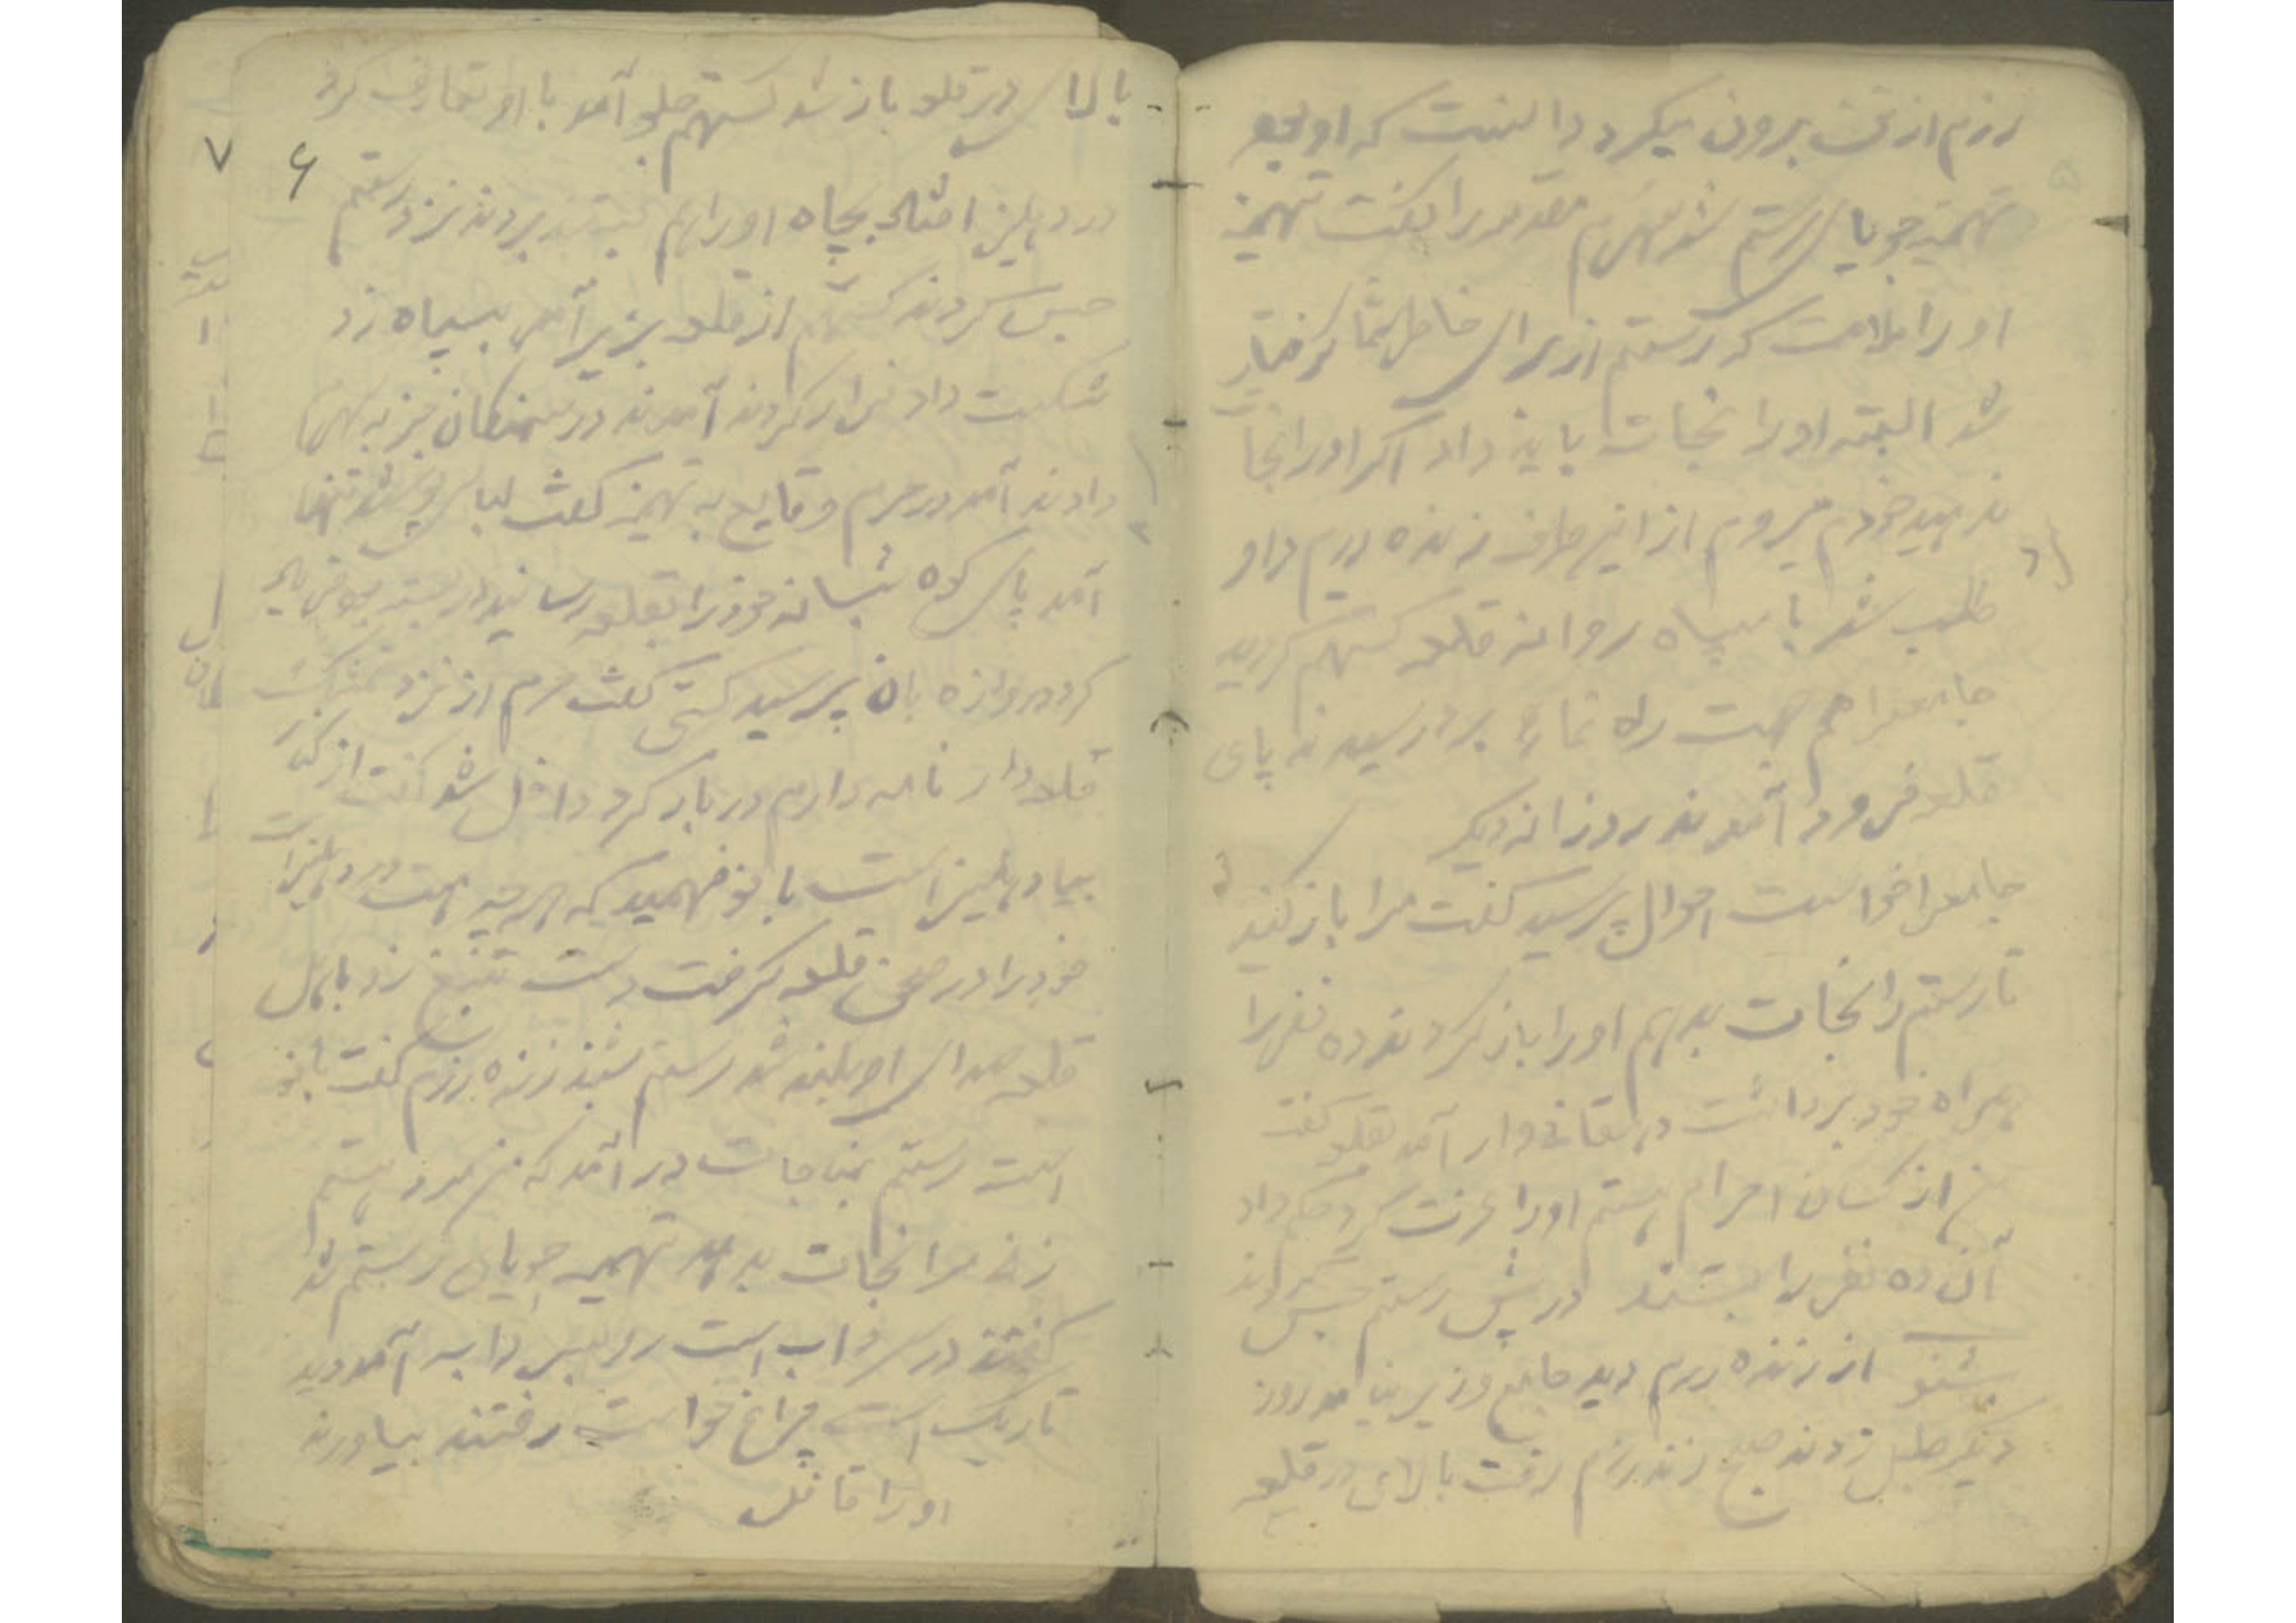 رزم از تخت برون میکرد دانست که او بچه
تهمینه جویای رستم شد سهرم مقدمه را گفت تهمینه
او را ملامت کرد رستم از برای خاطر شما گرفتار
شد البته او را نجات باید داد اگر او را نجات
ندهید خودم میروم از این طرف زنده رزم داو
طلب شد با سپاه روانه قلعه کستهم گردید
جامعرا هم جهت راه نمائی برد رسیدند پای
قلعه فرود آمدند روزانه دیگر
جامعرا خواست احوال پرسید گفت مرا باز کنید
تا رستم را نجات بدهم او را باز کردند ده نفر را
همراه خود برداشت دهقانی وار آمد بقلعه گفت
من از کسان احرام هستم او را عزت کرد حکم داد
آن ده نفر را بستند در پیش رستم حبس کردند
بشنو از زنده رزم دید جامع وزیر نیامد روز
دیگر طبل زدند صبح زنده رزم رفت بالای در قلعه
۶
۷
بالای در قلعه باز شد کستهم جلو آمد با او تعارف کرد
در دهلیز افتاد بچاه او را هم بستند بردند نزد رستم
حبس کردند کستهم از قلعه بزیر آمد بسپاه زد
شکست داد فرار کردند آمدند در سمنگان خبر به سهرم
دادند آمد در حرم وقایع به تهمینه گفت لباس پوشید تنها
آمد پای کوه شبانه خود را بقلعه رسانید در بسته بود
کرد دروازه بان پرسید کیستی گفت مرم از نزد
قلعه دار نامه دارم در باز کرد داخل شد گفت از کنار
بیا دهلیز است بانو فهمید که هر چه هست در دهلیز است
خود را در صحن قلعه گرفت دست بتیغ زد باهل
قلعه صدای او بلند شد رستم شنید زنده رزم گفت بانو
است رستم بمناجات در آمد که من مرد هستم
زنی مرا نجات بدهد تهمینه جویای رستم شد
گفتند در سرداب است رو بسرداب آمد دید
تاریک است چراغ خواست رفتند بیاورند
او را قاتل